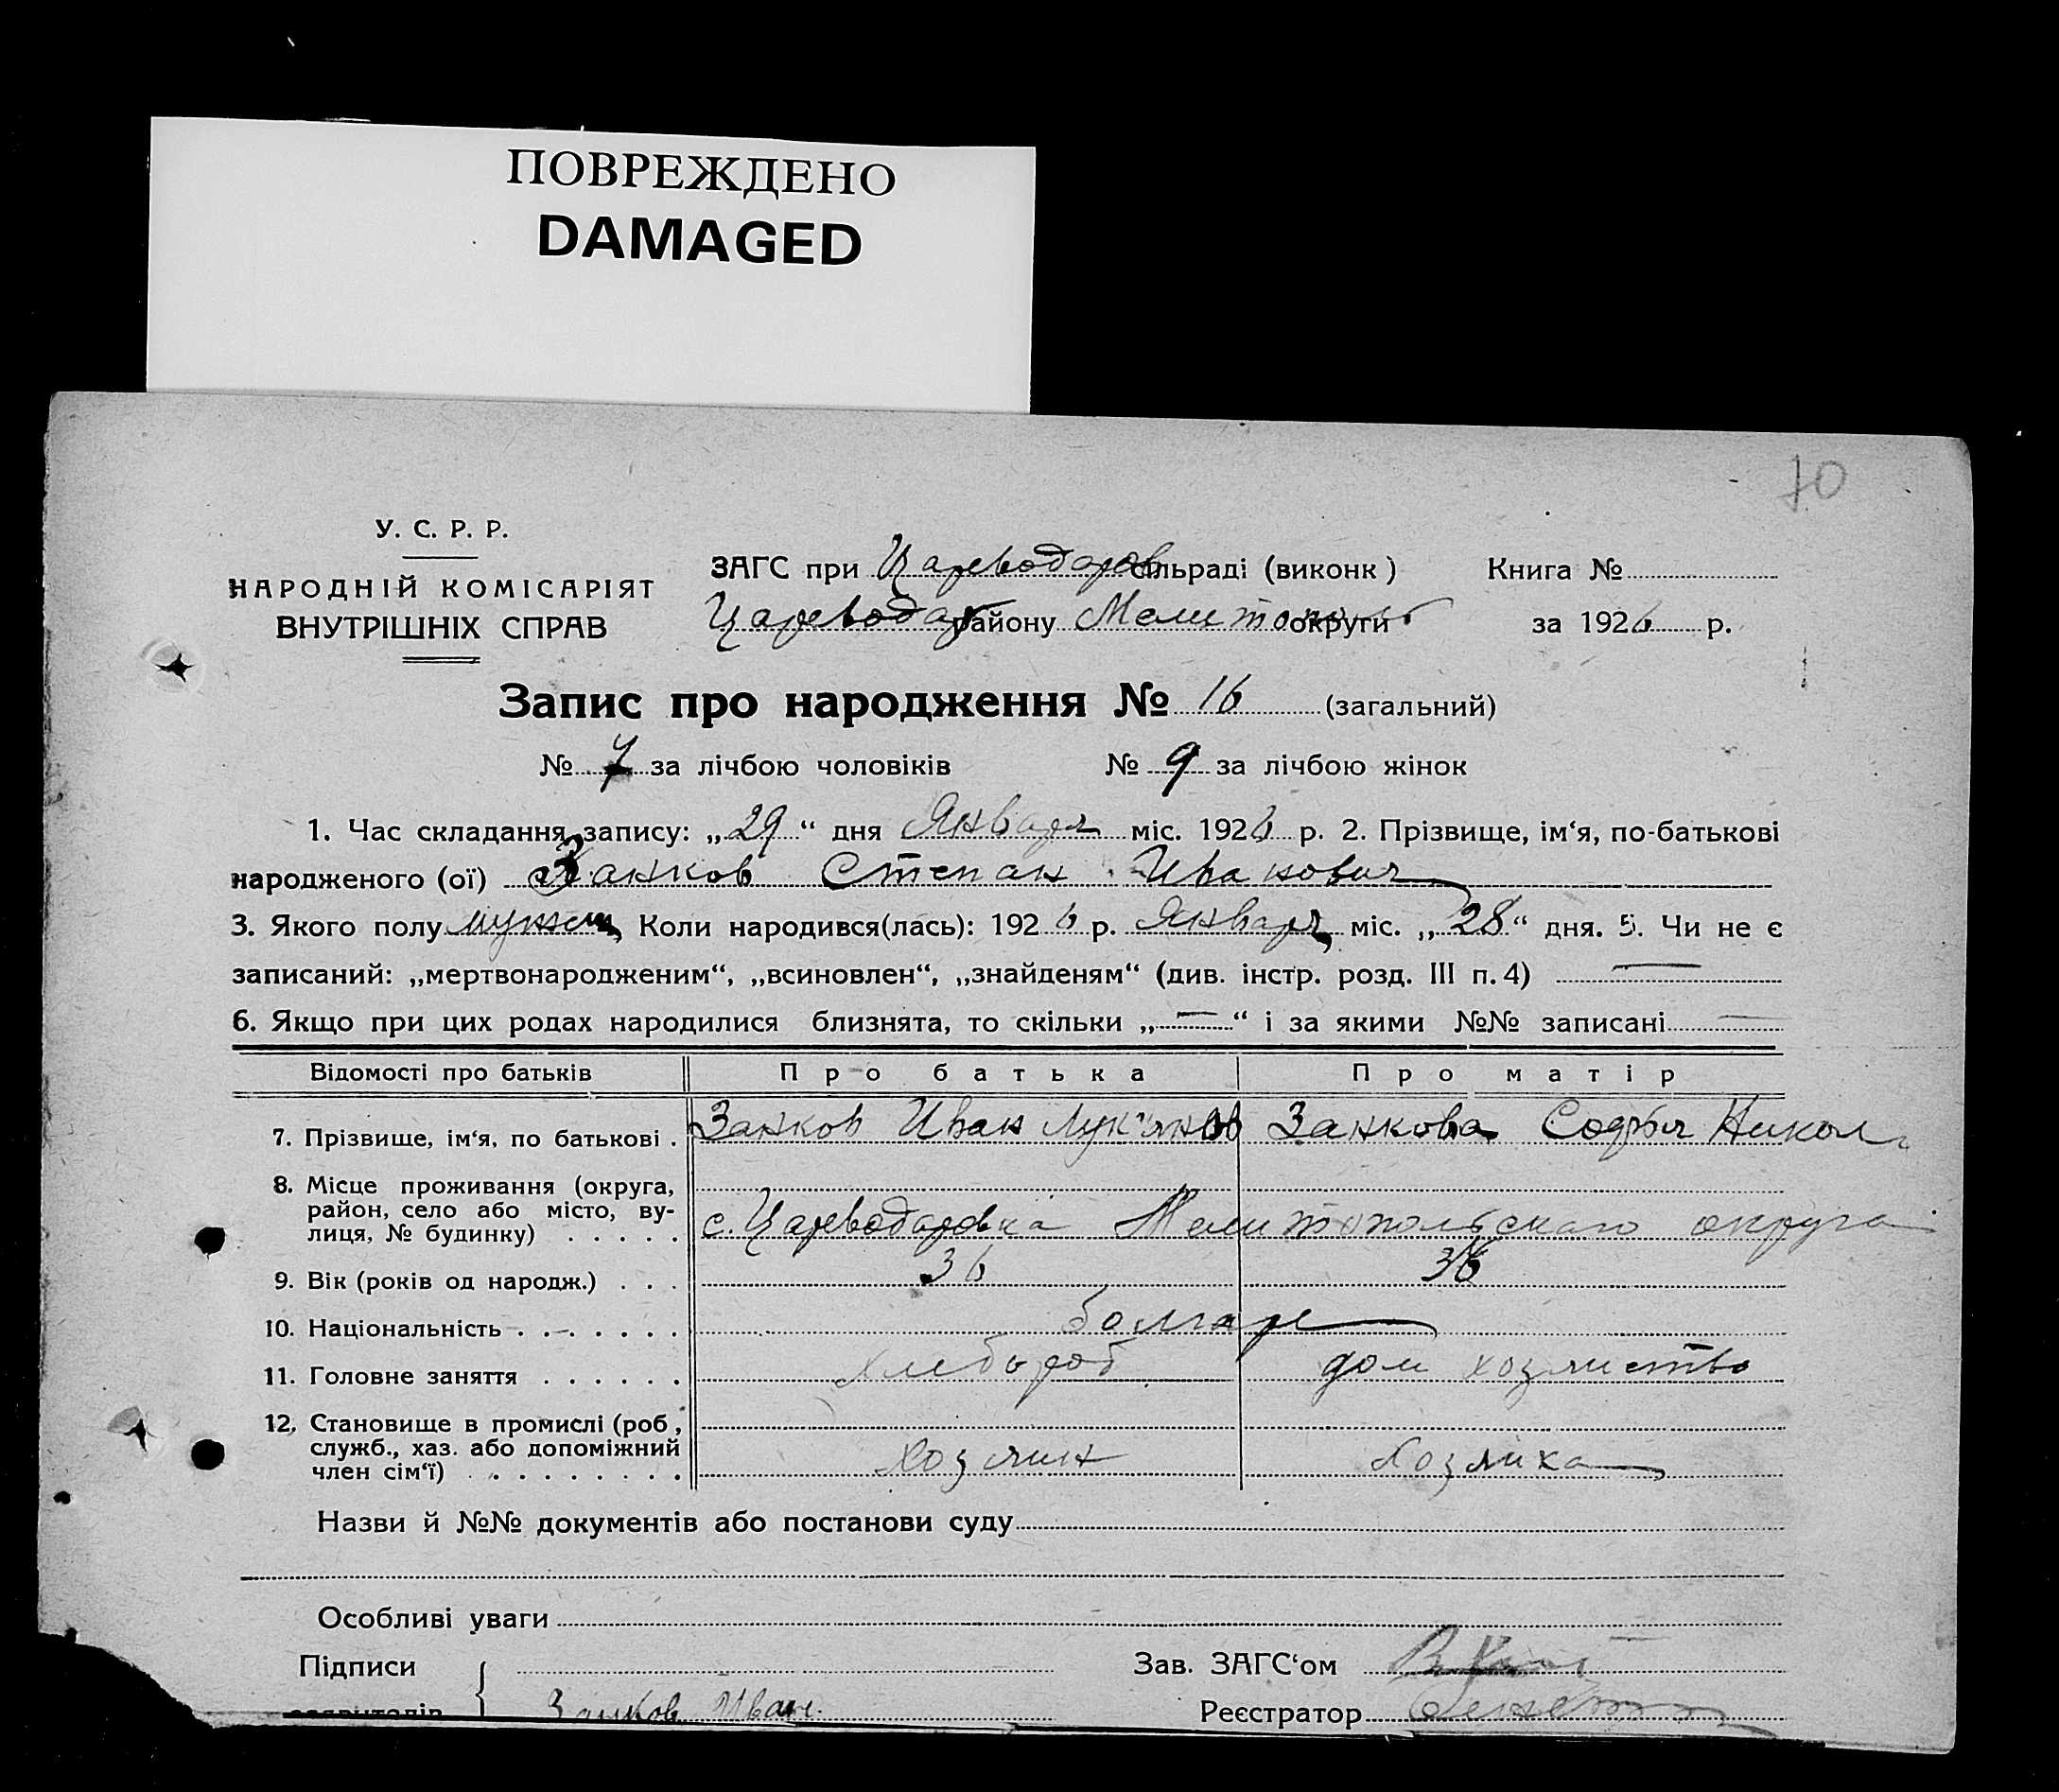 ПОВРЕЖДЕНО
DAMAGED
70
У. С. Р. Р.
НАРОДНІЙ КОМІСАРІЯТ
ВНУТРІШНІХ СПРАВ
ЗАГС при Цареводаров сільраді (виконк) Книга №
Цареводар району Мелитополь округи за 1926 р.
Запис про народження № 16 (загальний)
№ 7 за лічбою чоловіків № 9 за лічбою жінок
1. Час складання запису: „29“ дня Января міс. 1926 р. 2. Прізвище, ім‘я, по-батькові
народженого (ої) Занков Степан Иванович
3. Якого полу Коли народився(лась): 1926 р. Января міс. „28“ дня. 5. Чи не є
записаний: „мертвонародженим“, „всиновлен“, „знайденям“ (див. інстр. розд. III п. 4) —
6. Якщо при цих родах народилися близнята, то скільки „—“ і за якими №№ записані —
Відомості про батьків Про батька Про матір
7. Прізвище, ім‘я, по батькові . Занков Иван Лук'янов Занкова Софья Никол
8. Місце проживання (округа,
район, село або місто, ву-
лиця, № будинку) . . . . . с. Цареводаровка Мелитопольскаго округа
9. Вік (років од народж.) . . . 36 36
10. Національність . . . . . . . болгаре
11. Головне заняття . . . . . . хлебороб дом хозяиство
12. Становище в промислі (роб.,
служб., хаз. або допоміжний
член сім‘ї) . . . . . . . . . Хозяин Хозяика
Назви й №№ документів або постанови суду
Особливі уваги
Підписи Зав. ЗАГС‘ом
заявителів Занков Иван Реєстратор